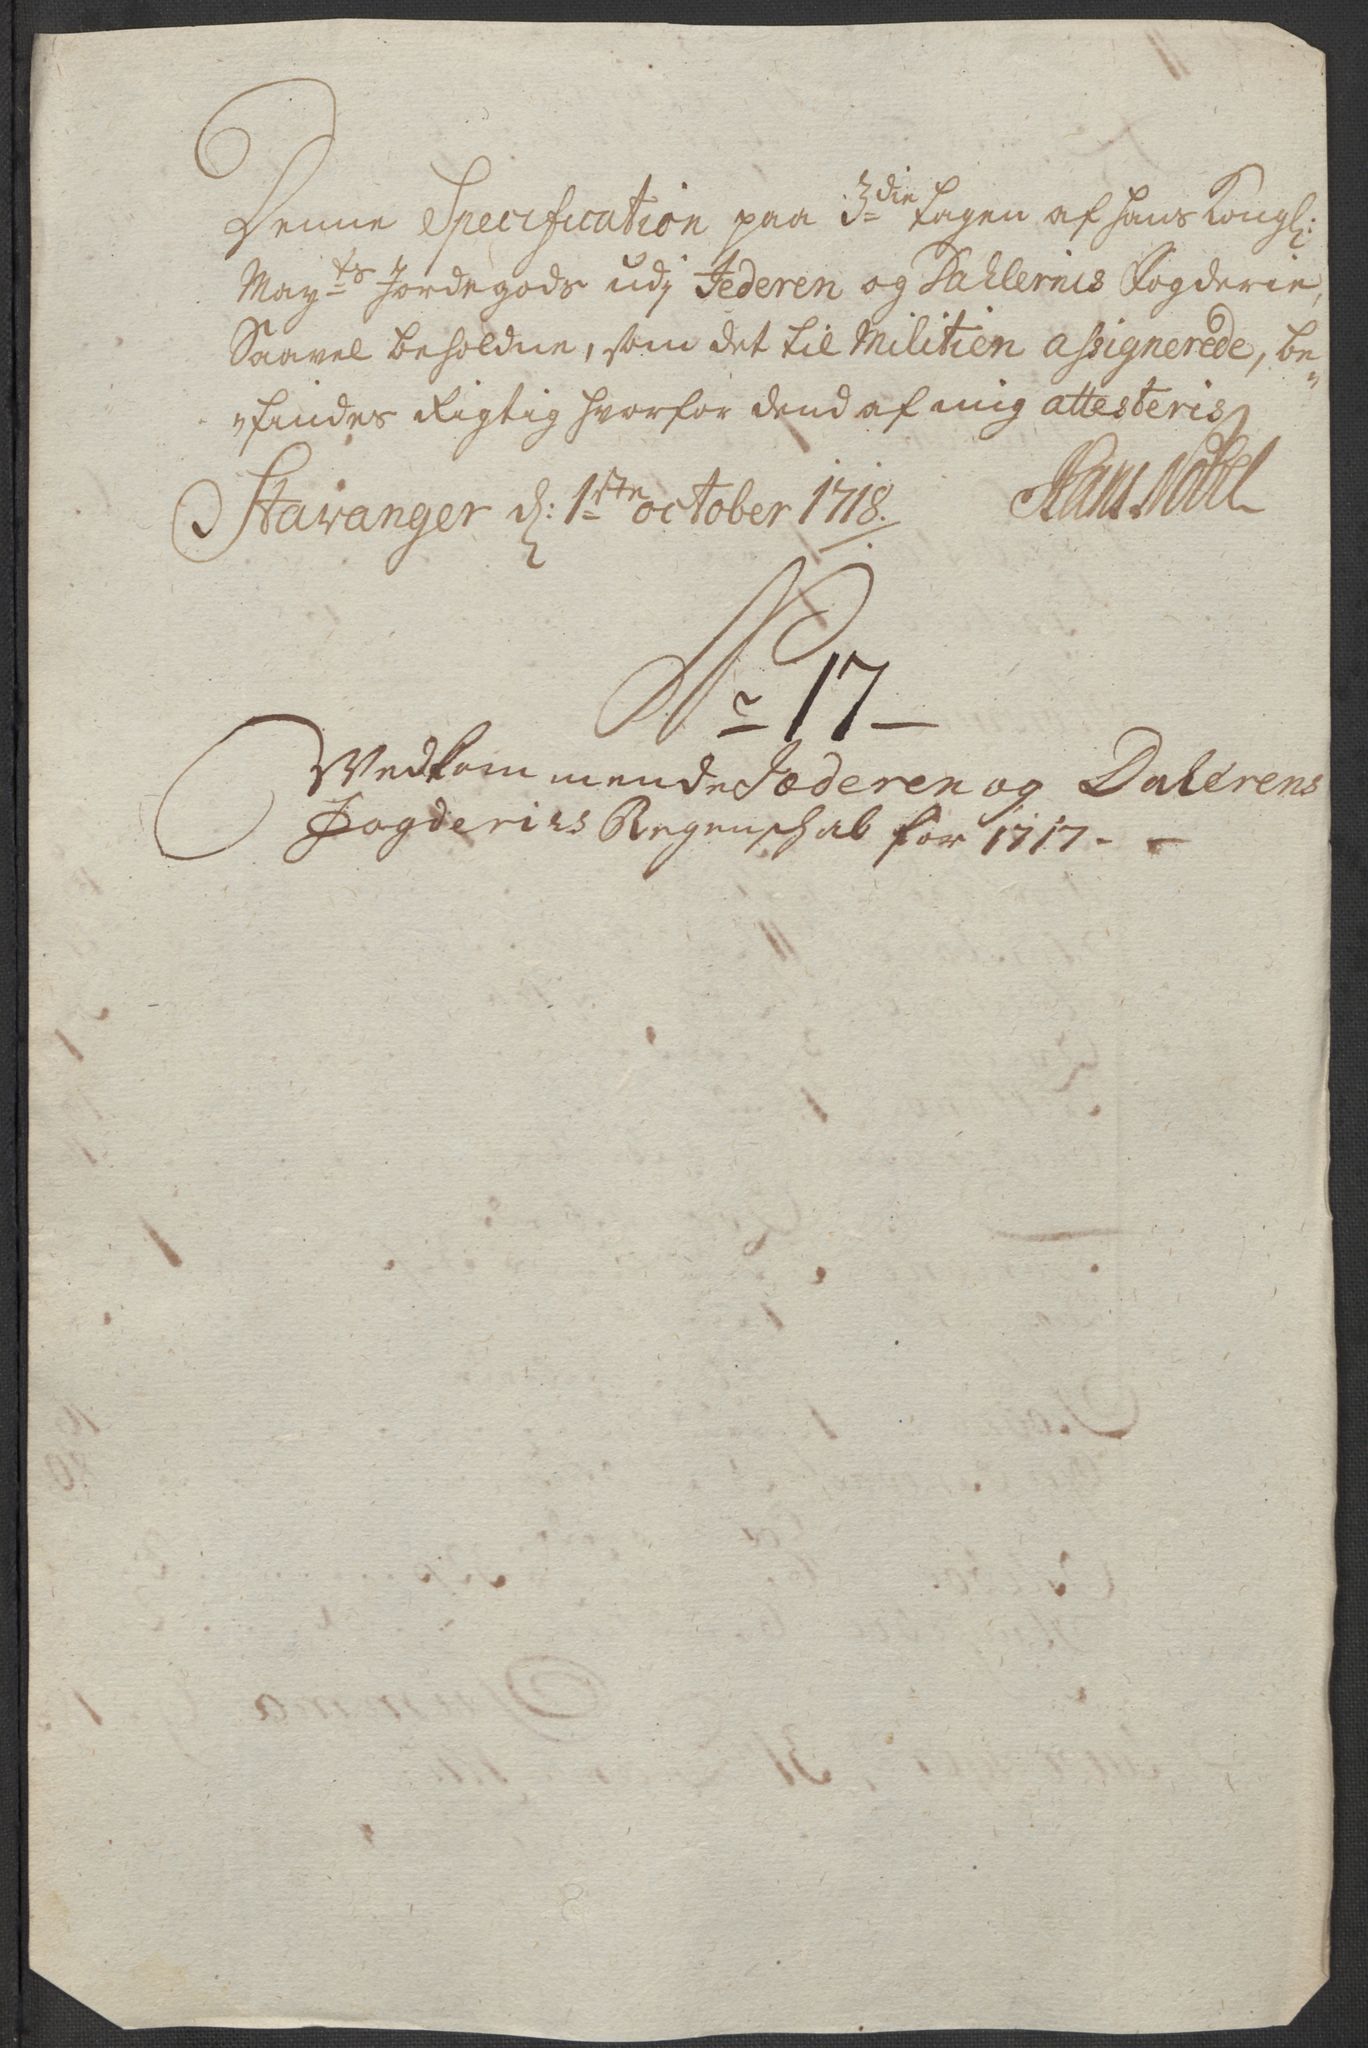 Denne Specification paa 3die tagen af hans Kongl:
Mayts Jordegods udj Jederen og Dahlernes Fogderie,
Saavel beholdne, som det til Militien assignerede, be„
„findes Rigtig hvorfor dend af mig attesteris
Stavanger d: 1ste october 1718.
Hans Nobel
No 17
Vedkommende Jæderen og Dalerens
Fogderies Regenschab for 1717